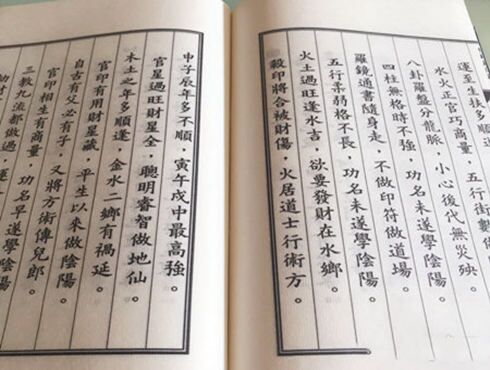 運至生扶多順
水火正官巧商量，五行術數做
八卦羅盤分龍脈，小心後代無災殃。
四柱無格時不強，功名未遂學陰陽。
羅鏡通書隨身走，不做印符做道場。
五行柔弱格不長，功名未遂學陰陽。
火土過旺逢水吉，欲要發財在水鄉。
殺印將合被財傷，火居道士行術方。
申子辰年多不順，寅午戌中最高強。
官星過旺財星全，聰明睿智做地仙。
木土之年多順逢，金水二鄉有禍延。
官印有用財星藏，平生以來做陰陽。
自古有父必有子，又將方術傳兒郎。
官印相生有商量，功名早遂學陰陽。
三教九流都做過，運